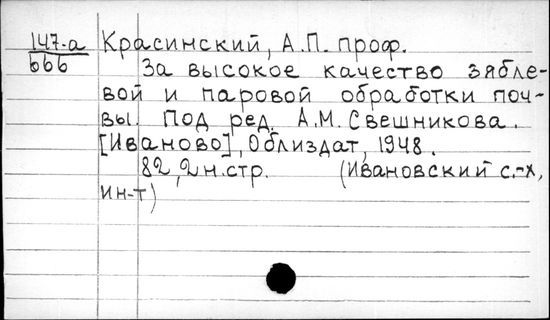 147-а Красинский, А.П. проф.
666 За высокое качество зябле-
вой и паровой обработки поч-
вы. Под ред. А.М. Свешникова.
[Иваново], Облиздат, 1948.
82, 2 н.стр. (Ивановский с.-х,
ин-т)